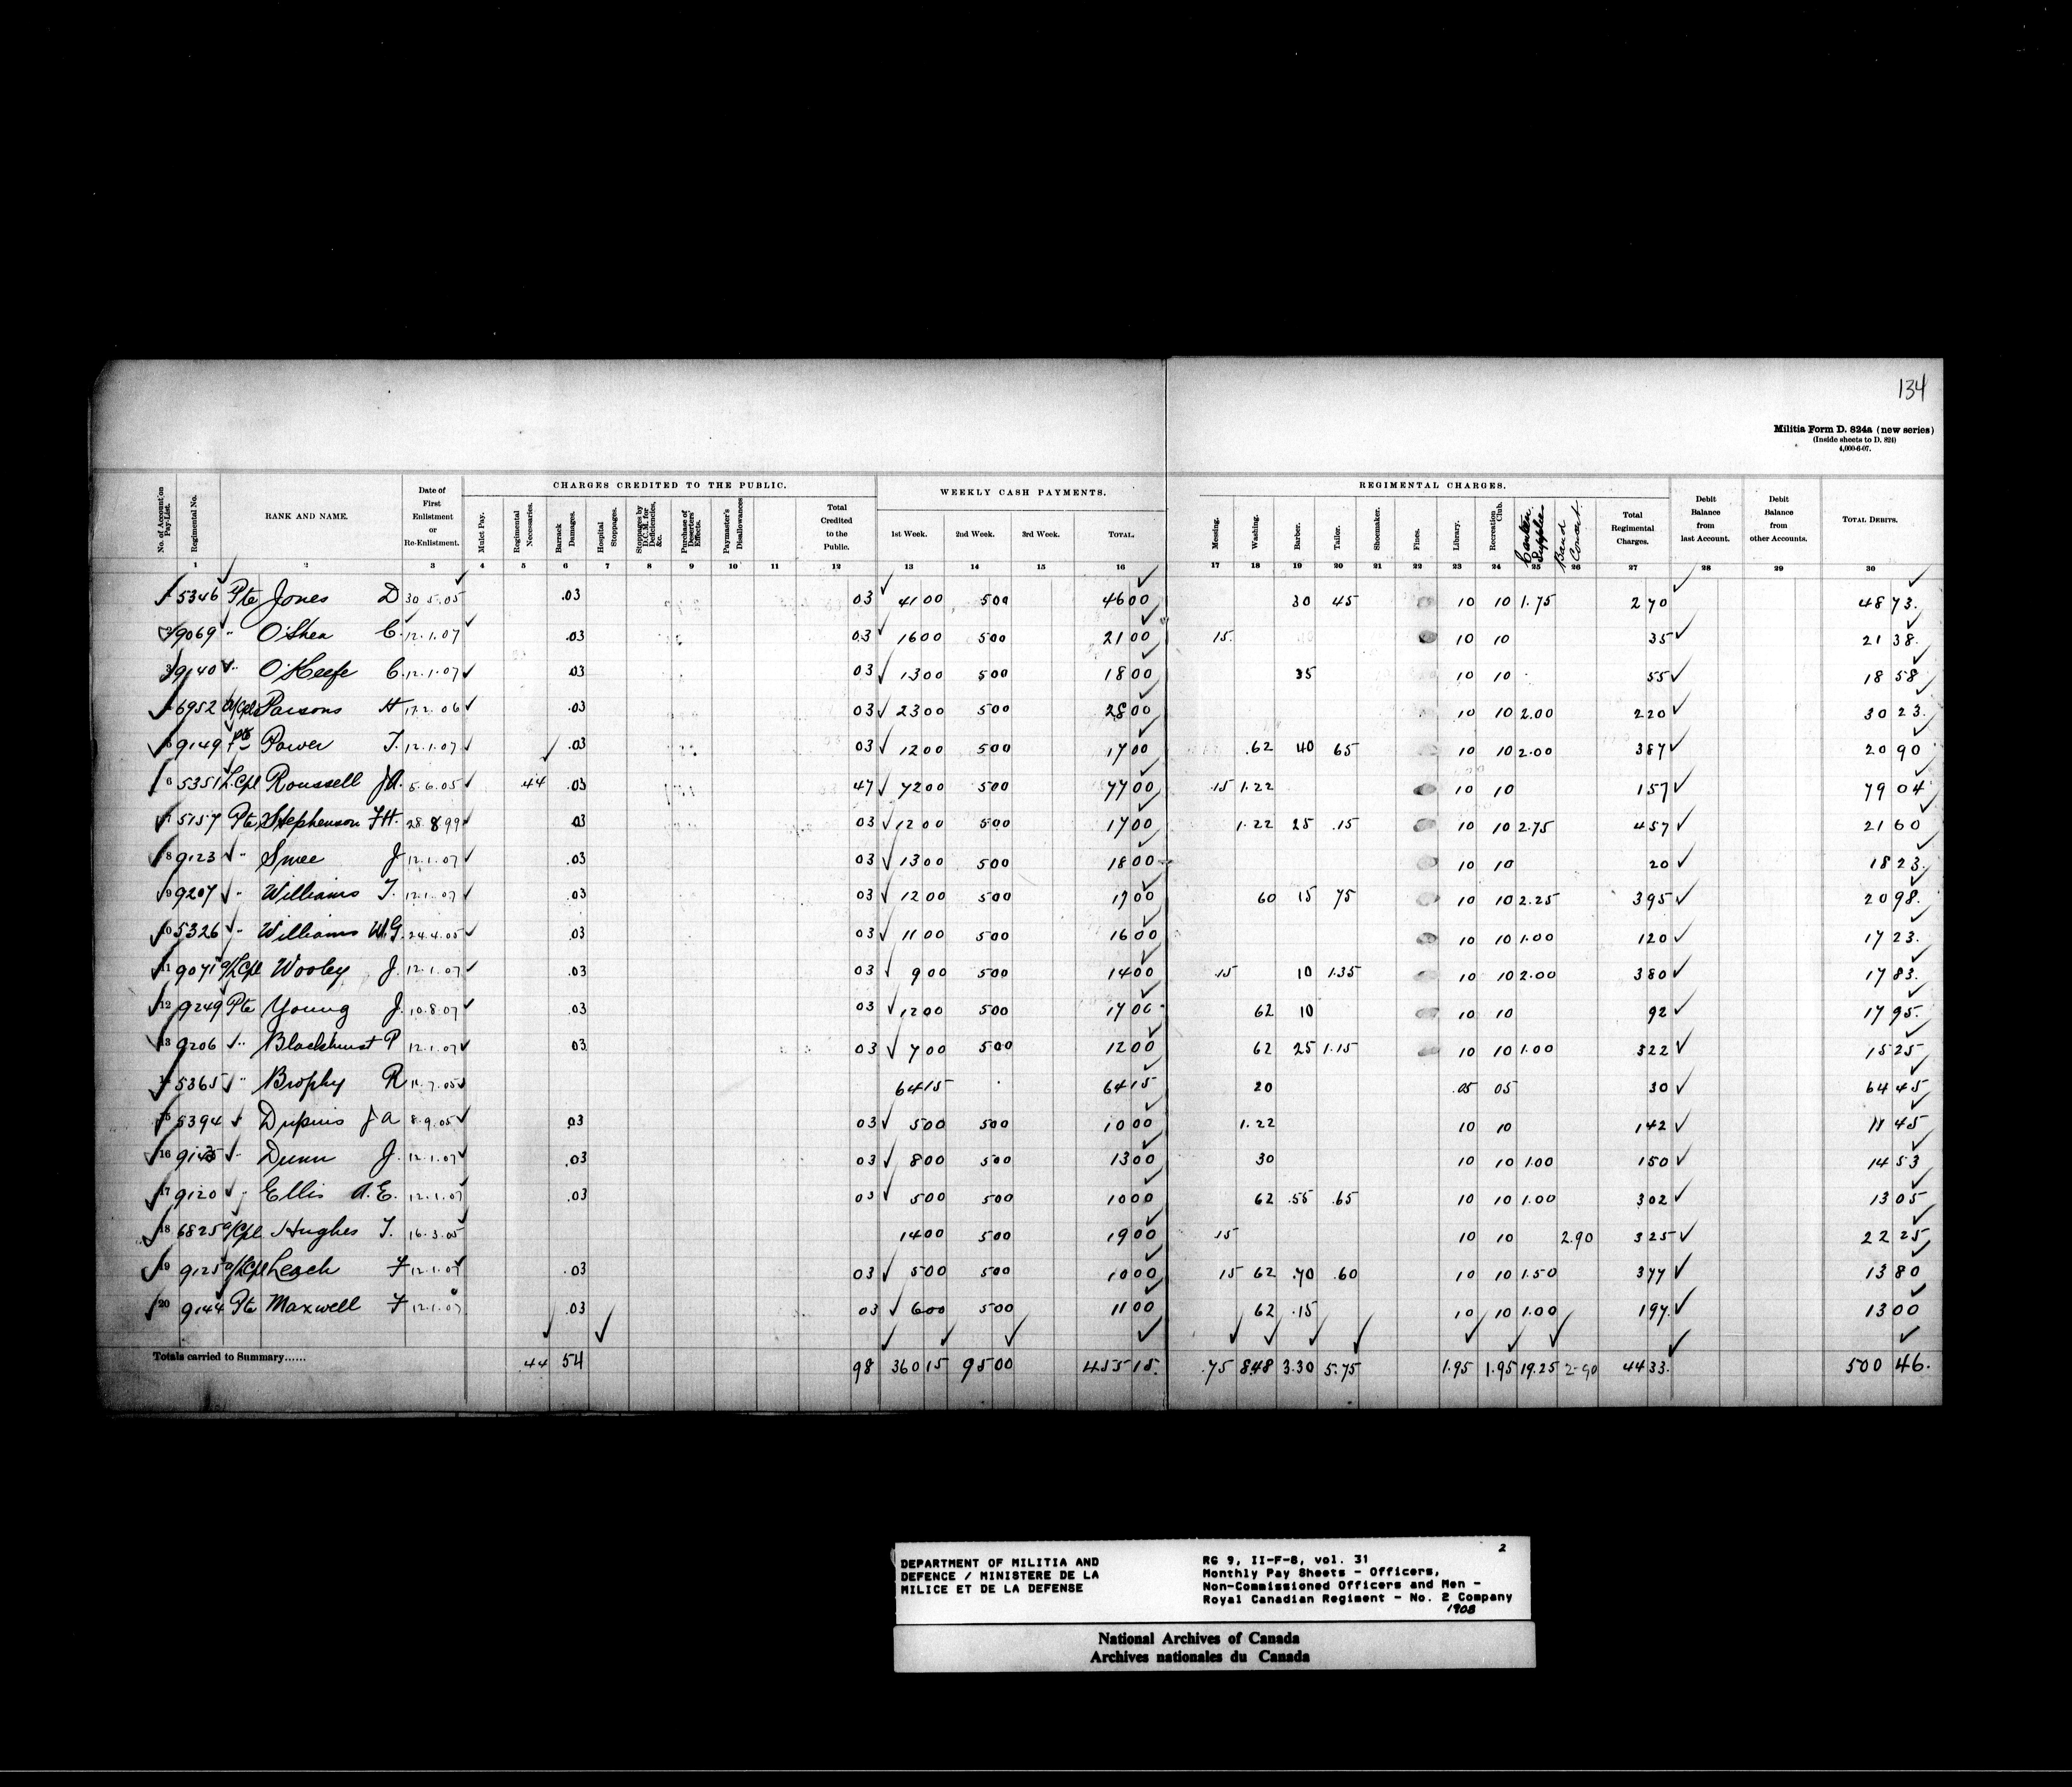 134
Militia Form D. 824a (new series)
(Inside sheets to D. 824)
4,000-6-07.
CHARGES CREDITED TO THE PUBLIC. WEEKLY CASH PAYMENTS. REGIMENTAL CHARGES.
No. of Account on Pay-List. Regimental No. RANK AND NAME. Date of First Enlistment or Re-Enlistment. Mulct Pay. Regimental Necessaries. Barrack Damages. Hospital Stoppages. Stoppages by D.C.M. for Deficiencies, &c. Purchase of Deserters' Effects. Paymaster's Disallowances Total Credited to the Public. 1st Week. 2nd Week. 3rd Week. TOTAL. Messing. Washing. Barber. Tailor. Shoemaker. Fines. Library. Recreation Club. Canteen Supplies Band Concert. Total Regimental Charges. Debit Balance from last Account. Debit Balance from other Accounts. TOTAL DEBITS.
1 2 3 4 5 6 7 8 9 10 11 12 13 14 15 16 17 18 19 20 21 22 23 24 25 26 27 28 29 30
1 5346 Pte Jones D 30.5.05 .03 03 4100 500 4600 30 45 10 10 1.75 270 4873.
2 9069 " O'Shea C. 12.1.07 .03 03 1600 500 2100 15. 10 10 35 2138.
3 9140 " O'Keefe C. 12.1.07 .03 03 1300 500 1800 35 10 10 55 1858
4 6952 A/Cpl Parsons H 17.2.06 .03 03 2300 500 2800 10 10 2.00 220 3023.
5 9149 Pte Power T. 12.1.07 .03 03 1200 500 1700 .62 40 65 10 10 2.00 387 2090
6 5351 L.Cpl Roussell J.A. 5.6.05 44 .03 47 7200 500 7700 .15 1.22 10 10 157 7904
7 5157 Pte Stephenson F.H. 28.8.99 .03 03 1200 500 1700 1.22 25 .15 10 10 2.75 457 2160
8 9123 " Smee J 12.1.07 .03 03 1300 500 1800 10 10 20 1823.
9 9207 " Williams T. 12.1.07 .03 03 1200 500 1700 60 15 75 10 10 2.25 395 2098.
10 5326 " Williams W.G. 24.4.05 .03 03 1100 500 1600 10 10 1.00 120 1723.
11 9071 a/LCpl Wooley J. 12.1.07 .03 03 900 500 1400 .15 10 1.35 10 10 2.00 380 1783.
12 9249 Pte Young J. 10.8.07 .03 03 1200 500 1700 62 10 10 10 92 1795.
13 9206 " Blackhurst P 12.1.07 03 03 700 500 1200 62 25 1.15 10 10 1.00 322 1525
14 5365 " Brophy R 11.7.05 6415 6415 20 .05 05 30 6445
15 5394 " Dupuis J A 8.9.05 03 03 500 500 1000 1.22 10 10 142 1145
16 " Dunn J. 12.1.07 .03 03 800 500 1300 30 10 10 1.00 150 1453
17 9120 " Ellis A.E. 12.1.07 .03 03 500 500 1000 62 .55 .65 10 10 1.00 302 1305
18 6825 a/Cpl Hughes T. 16.3.05 1400 500 1900 .15 10 10 2.90 325 2225
19 9125 a/LCpl Leach F 12.1.07 .03 03 500 500 1000 15 62 .70 .60 10 10 1.50 377 1380
20 9144 Pte Maxwell F 12.1.07 .03 03 600 500 1100 62 .15 10 10 1.00 197. 1300
Totals carried to Summary...... 44 54 98 36015 9500 45515. .75 848 3.30 5.75 1.95 1.95 19.25 2.90 4433. 50046.
2
DEPARTMENT OF MILITIA AND
DEFENCE / MINISTERE DE LA
MILICE ET DE LA DEFENSE
RG 9, II-F-8, vol. 31
Monthly Pay Sheets - Officers,
Non-Commissioned Officers and Men -
Royal Canadian Regiment - No. 2 Company
1908
National Archives of Canada
Archives nationales du Canada